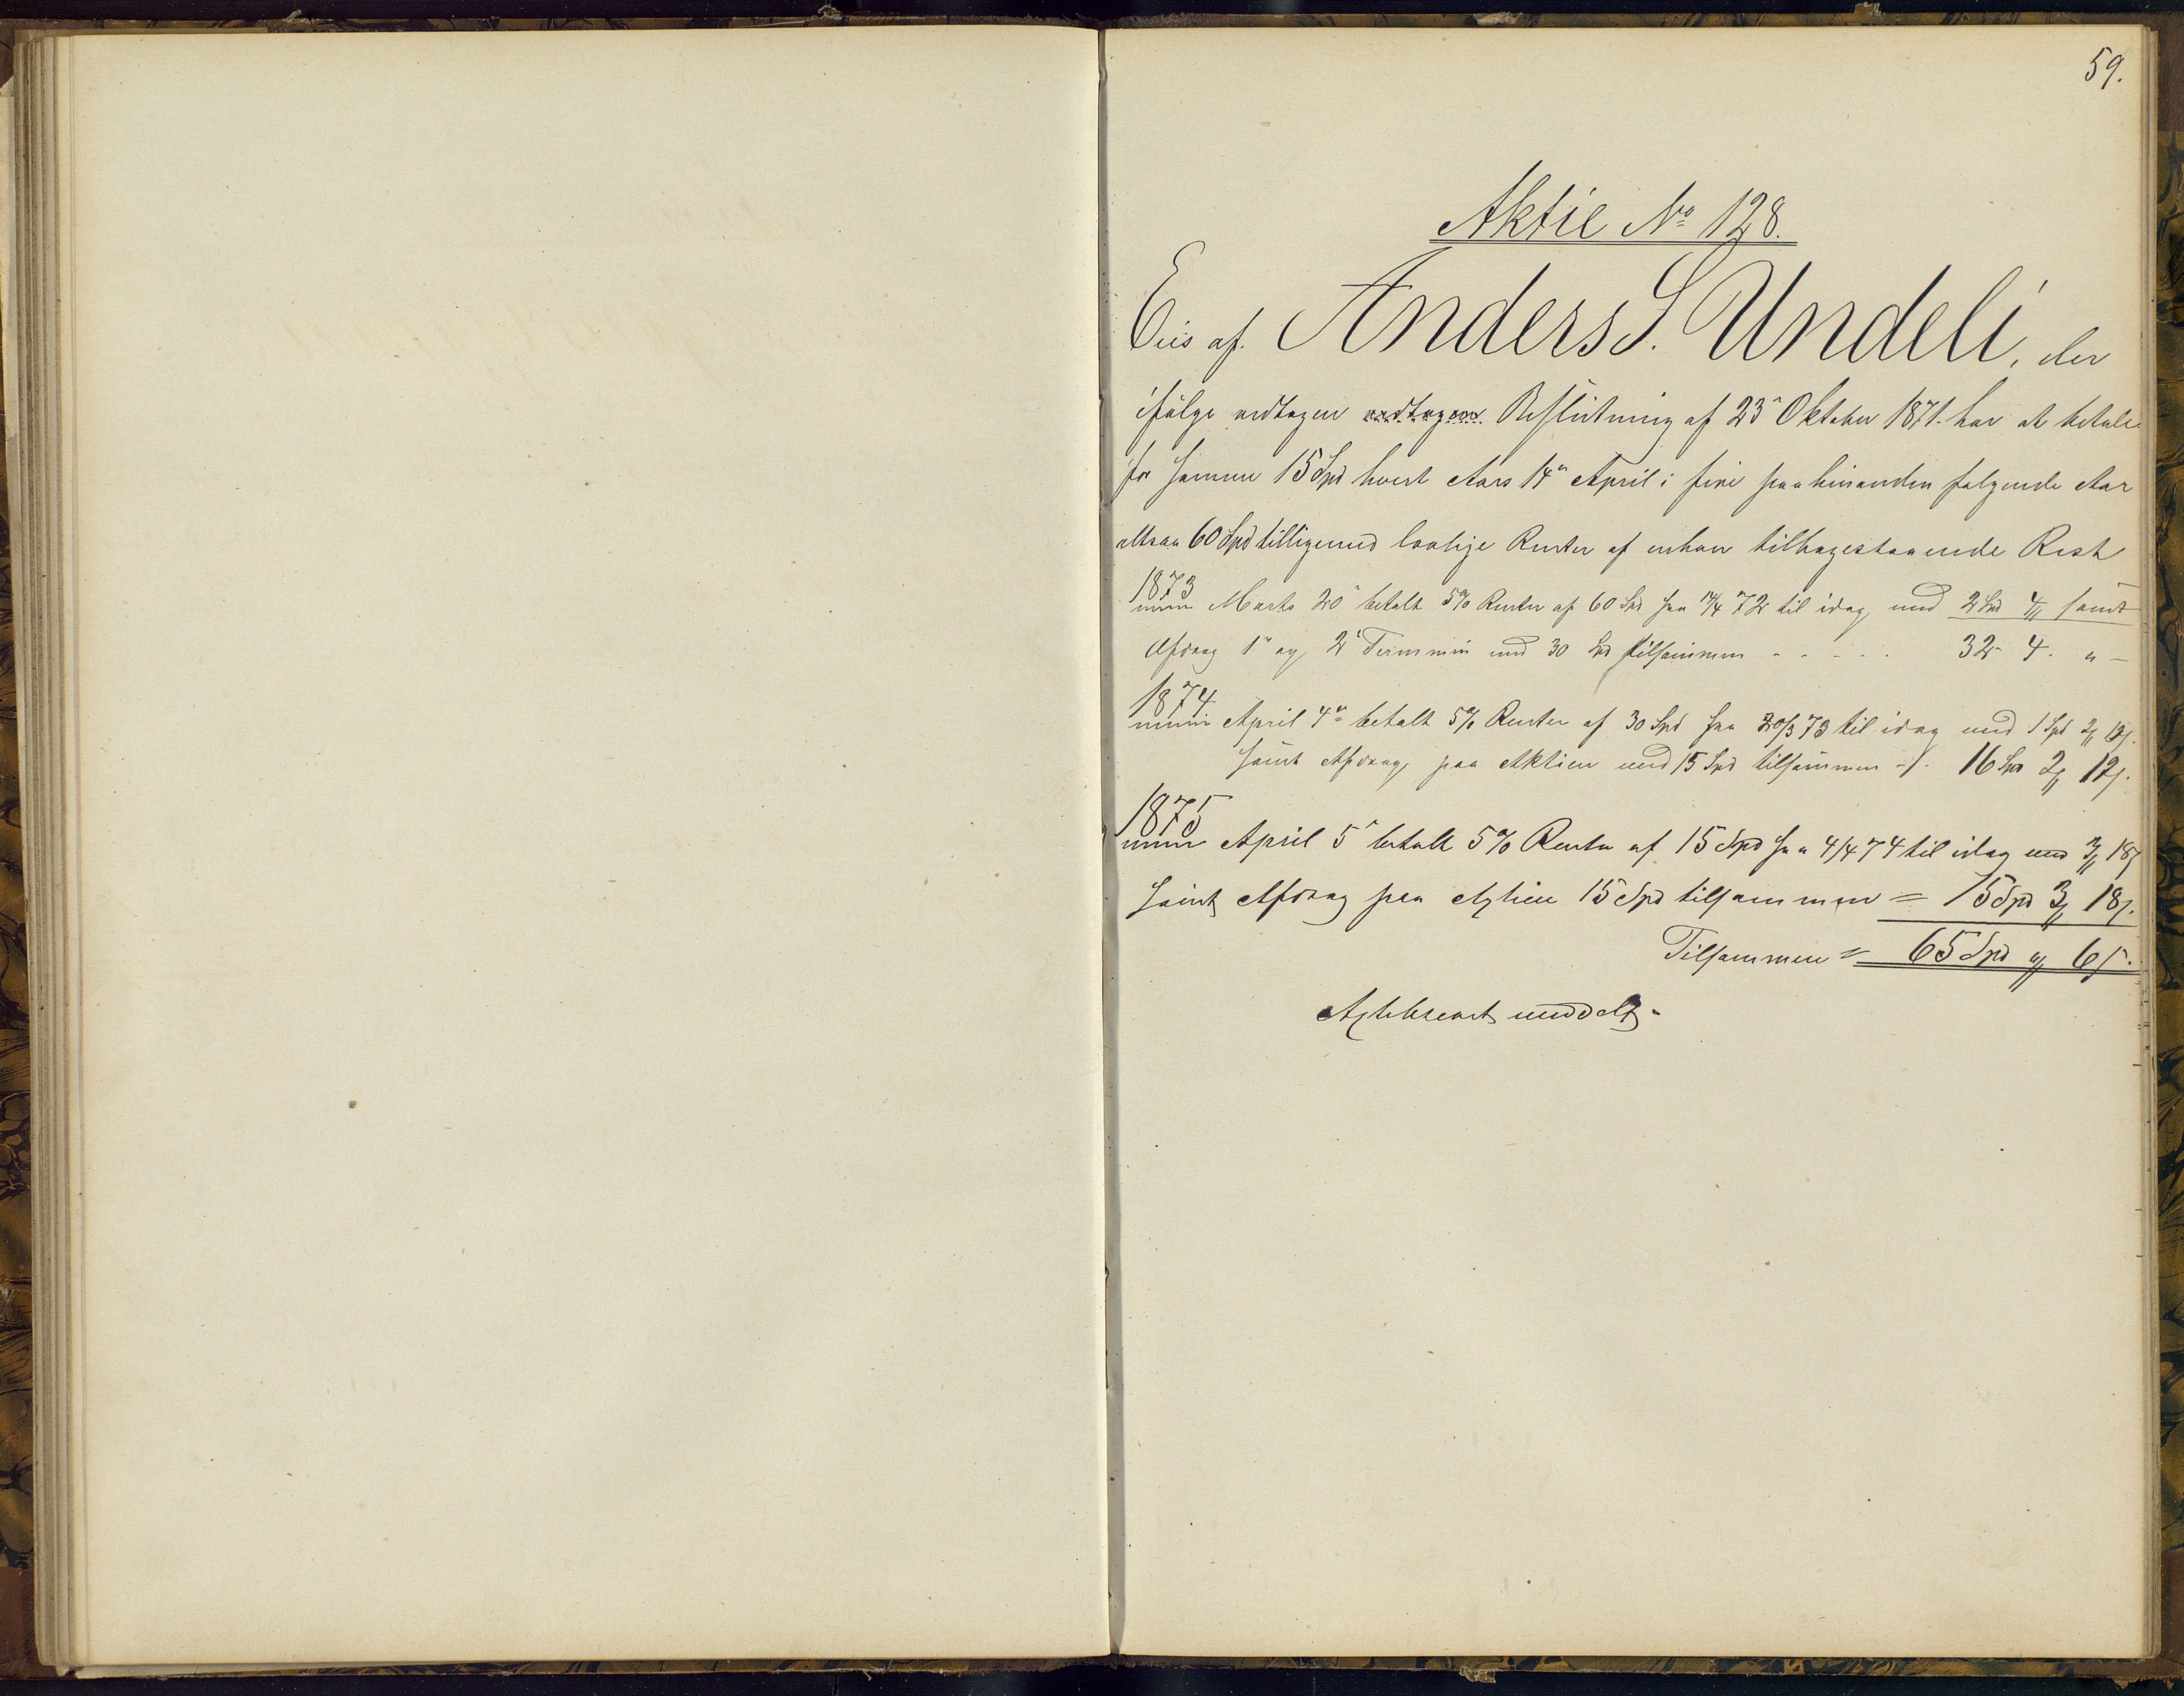 59.
Aktie No 128.
Eies af. Anders S. Undeli, der
ifölge vedtagen vedtagen Beslutning af 23de Oktober 1871. har at betale
for samme 15 Spd hvert Aars 14de April i fire paa hinanden følgende Aar
altsaa 60 Spd tilligemed lovlige Renter af enhver tilbagestaaende Rest
1873
Marts 20de betalt 5% Renter af 60 Spd fra 14/4 72 til idag med 2 Spd 4 samt
Afdrag 1ste og 2den Terminn med 30 Spd tilsammen - - - - - 32 - 4. " -
1874
April 4de betalt 5% Renter af 30 Spd fra 20/3 73 til idag med 1 Spd 2 12
samt Afdrag paa Aktien med 15 Spd tilsammen - 16 Spd 2 12
1875
April 5te betalt 5% Rente af 15 Spd fra 4/4 74 til idag med 3 18
samt Afdrag paa Aktien 15 Spd tilsammen = 15 Spd 3 18
Tilsammen = 65 Spd " 6
Aktiebrevet meddelt